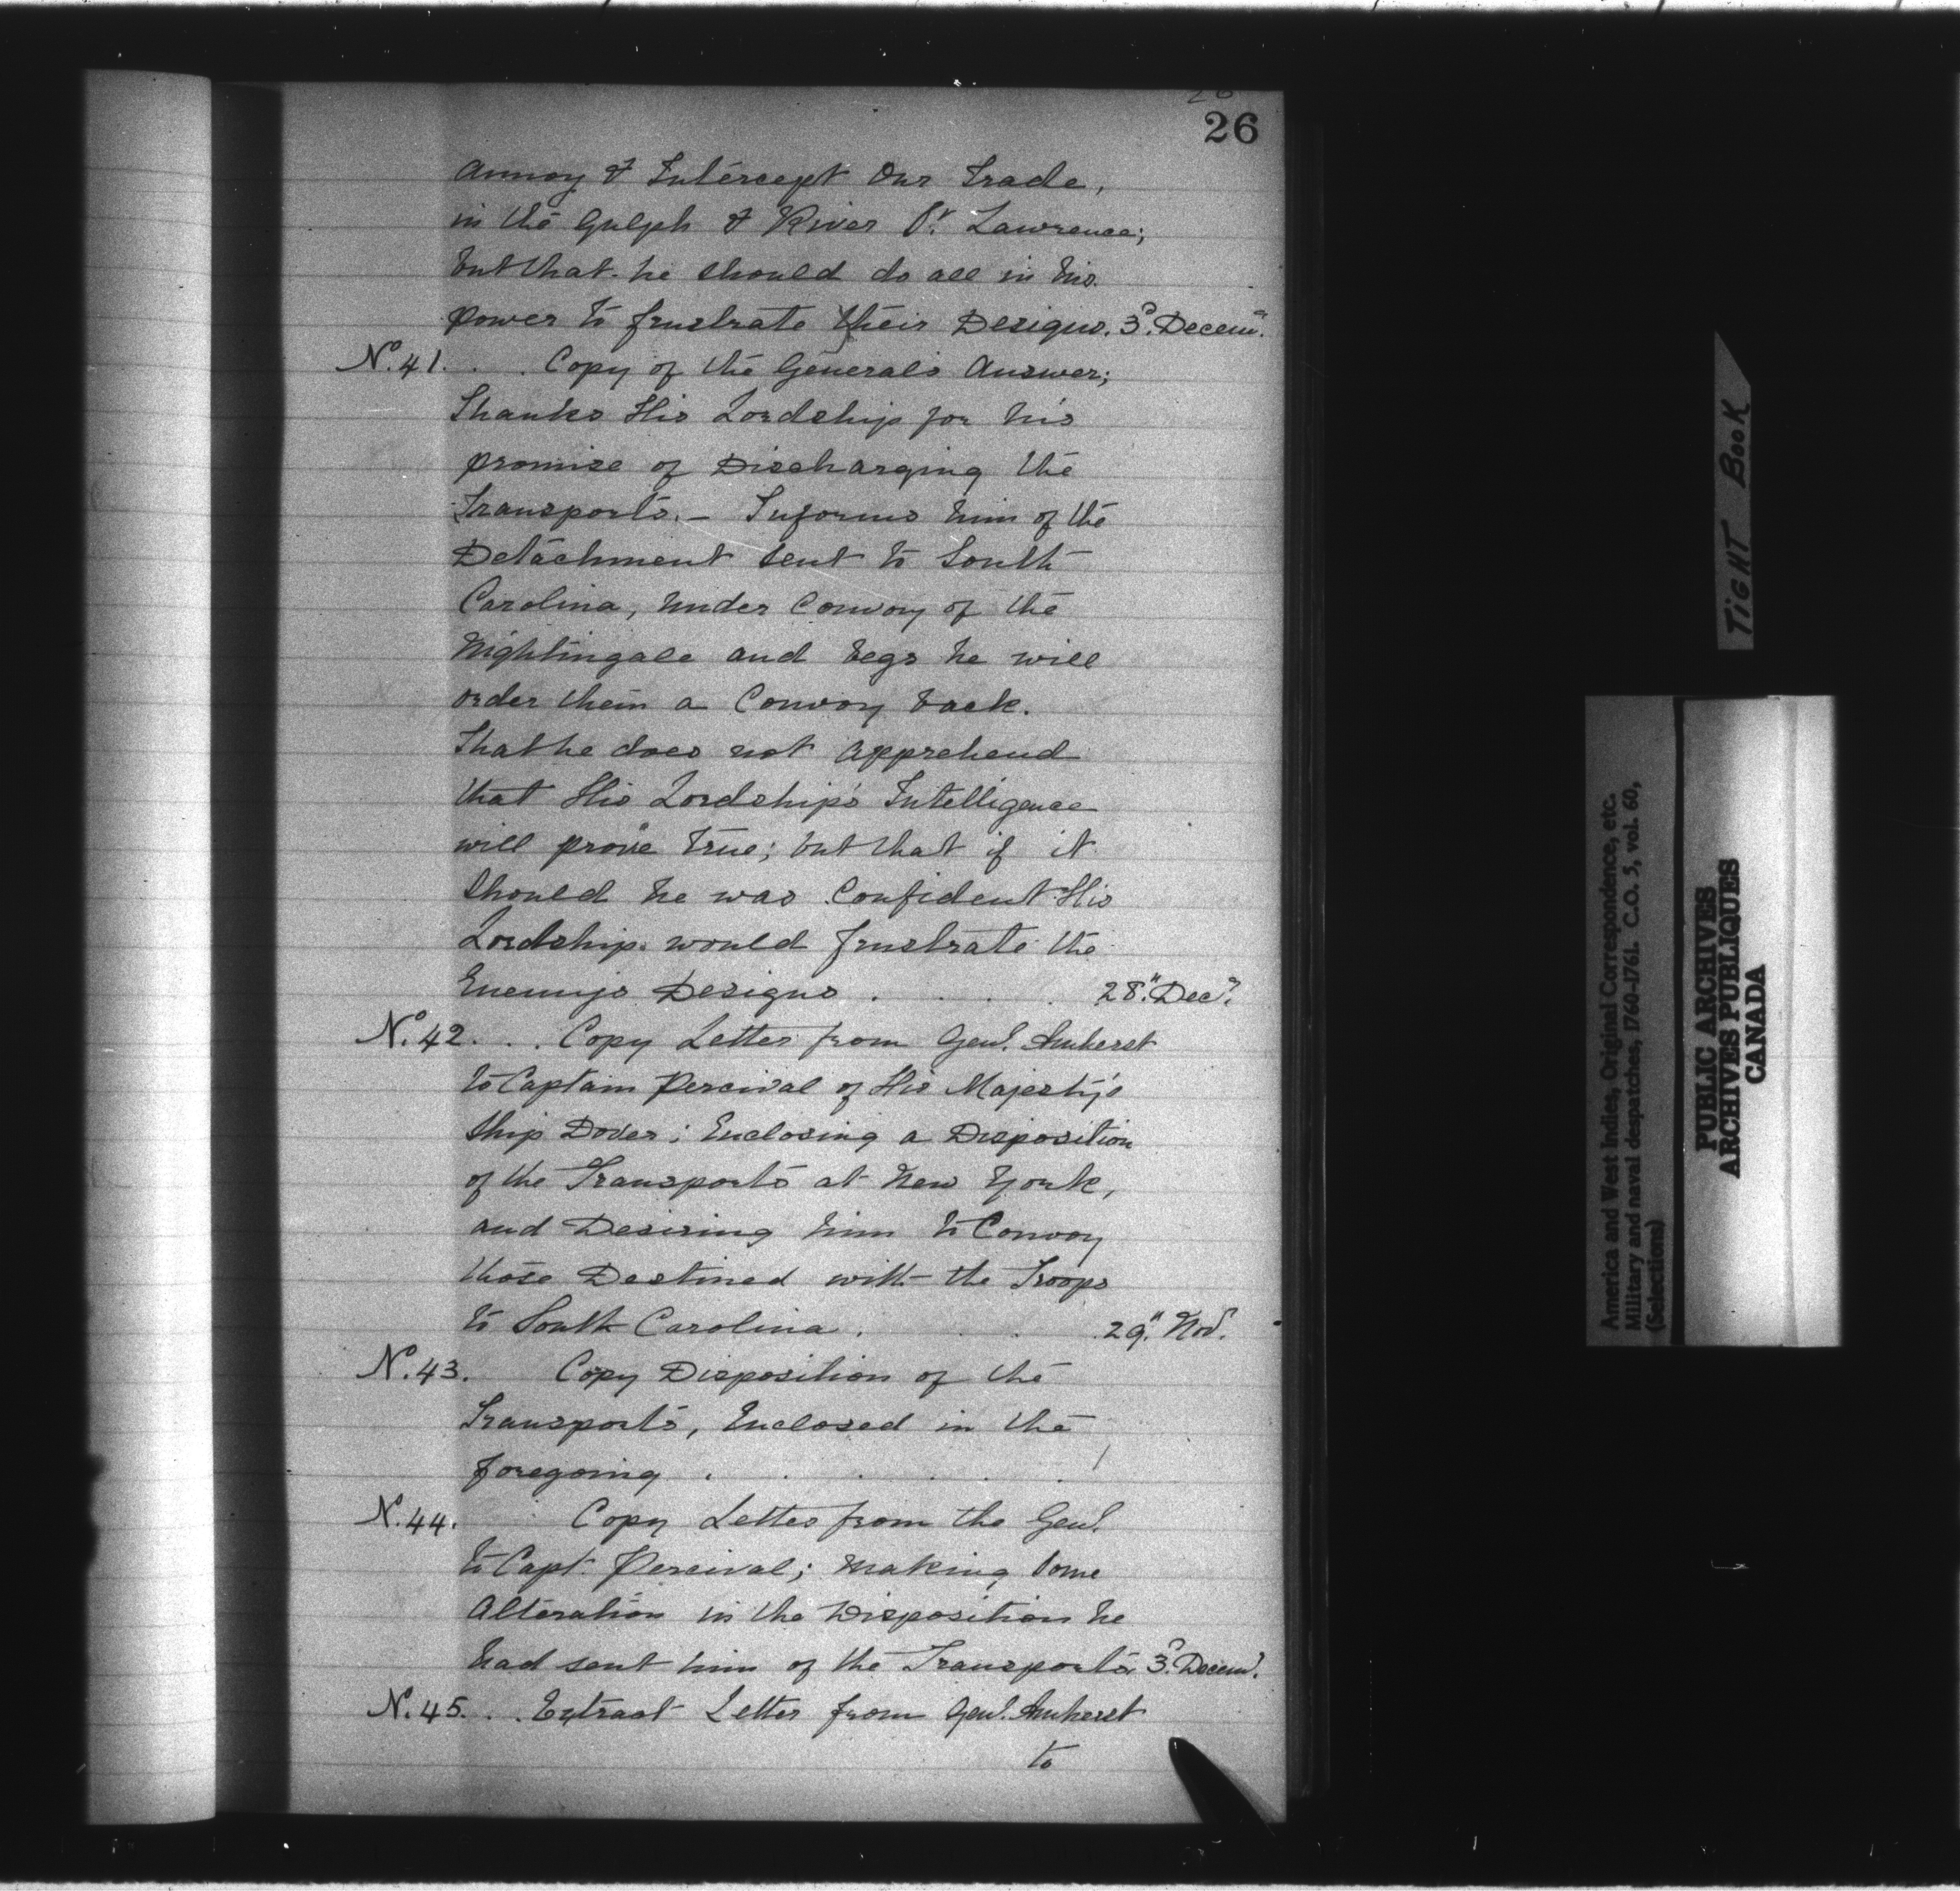 26
Annoy & Intercept Our Trade,
in the Gulph & River St. Lawrence;
but that he should do all in his
power to frustrate their Designs. 3d. Decemr.
No. 41. . . Copy of the Generals Answer;
Thanks His Lordship for his
promise of Discharging the
Transports. – Informs him of the
Detachment sent to South
Carolina, under Convoy of the
Nightingale and begs he will
order them a Convoy back.
That he does not apprehend
that His Lordship's Intelligence
will prove true; but that if it
should he was Confident His
Lordship would frustrate the
Enemys Designs . . . . 28". Decr.
No. 42. . . Copy Letter from Genl. Amherst
to Captain Percival of His Majesty's
Ship Dover; Enclosing a Disposition
of the Transports at New York,
and Desiring him to Convoy
those Destined with the Troops
to South Carolina . . . . 29". Novr.
No. 43. Copy Disposition of the
Transports, Enclosed in the
foregoing . . . . . .
No. 44. Copy Letter from the Genl.
to Capt. Percival; making some
Alteration in the Disposition he
had sent him of the Transports 3d. Decemr.
No. 45. . . Extract Letter from Genl. Amherst
to
TiGHT BooK
America and West Indies, Original Correspondence, etc.
Military and naval despatches, 1760-1761. C.O. 5, vol. 60,
(Selections)
PUBLIC ARCHIVES
ARCHIVES PUBLIQUES
CANADA